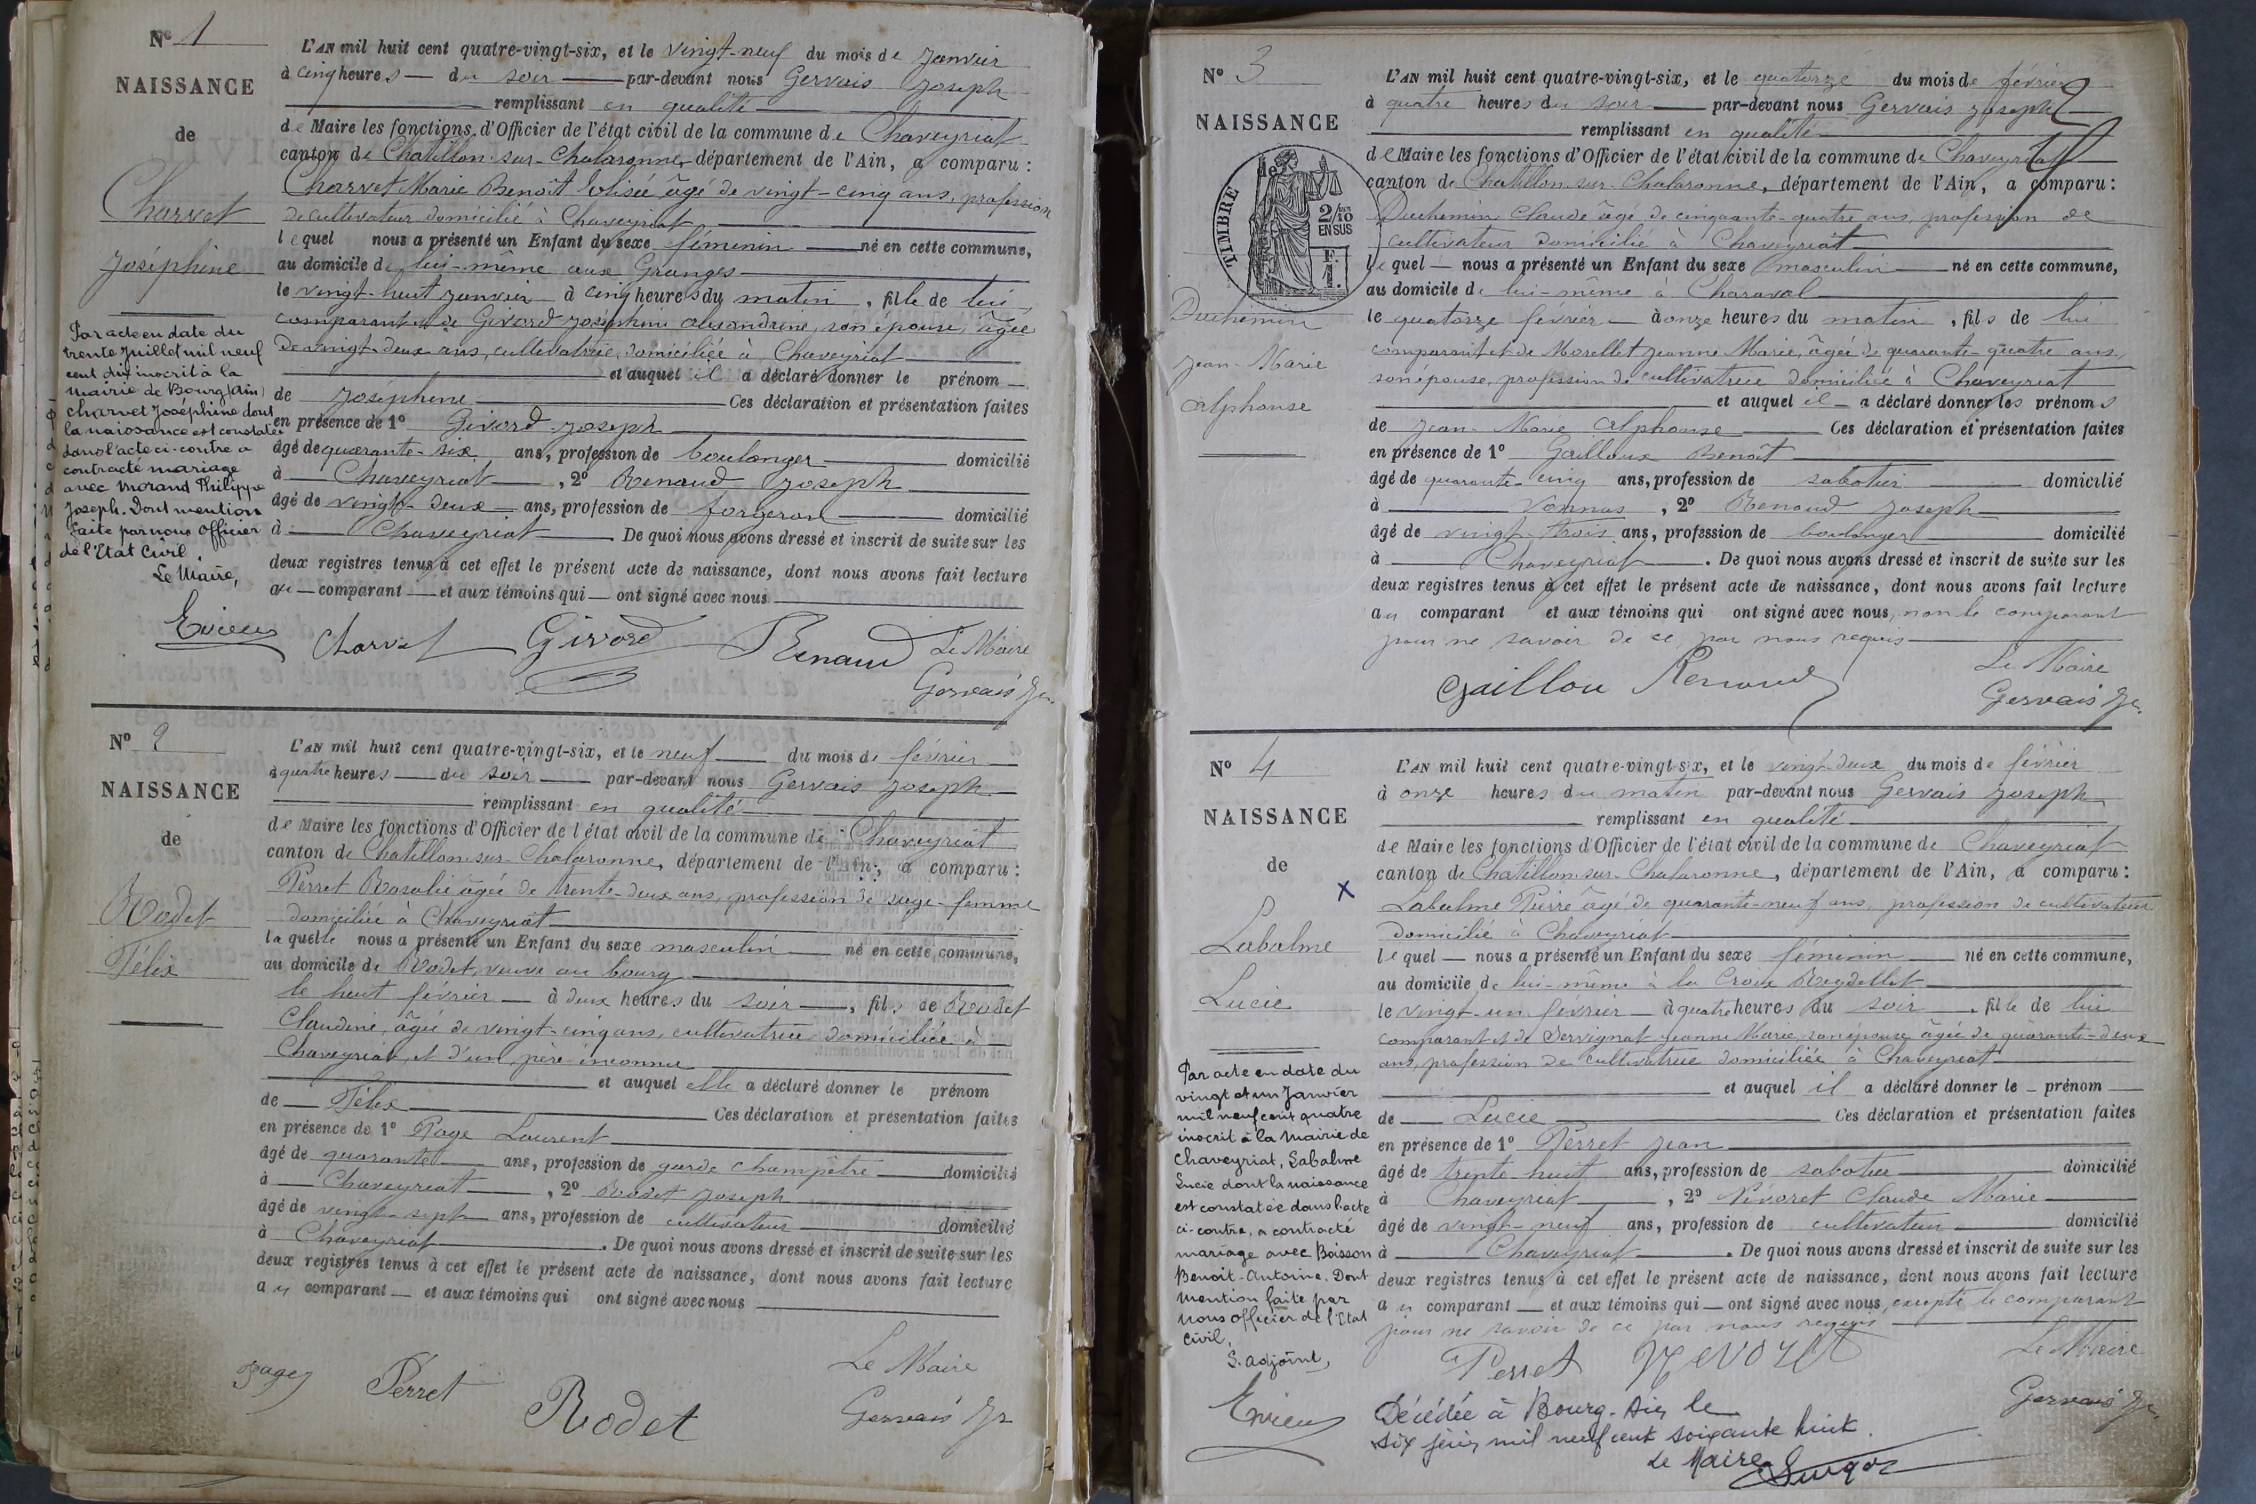 N° 1
NAISSANCE
de
Charvet
Joséphine
Par acte en date du
trente Juillet mil neuf
cent dix inscrit à la
mairie de Bourg (Ain)
Charvet Joséphine dont
la naissance est constatée
dans l'acte ci-contre a
contracté mariage
avec Morand Philippe
Joseph. Dont mention
faite par nous officier
de l'Etat Civil.
Le Maire,
L'AN mil huit cent quatre-vingt-six, et le vingt-neuf du mois de Janvier
à cinq heures du soir par-devant nous Gervais Joseph
remplissant en qualité
de Maire les fonctions d'Officier de l'état civil de la commune de Chaveyriat
canton de Chatillon-sur-Chalaronne, département de l'Ain, a comparu :
Charvet Marie Benoît âgé de vingt-cinq ans, profession
de cultivateur domicilié à Chaveyriat
lequel nous a présenté un Enfant du sexe féminin né en cette commune,
au domicile de lui-même aux Granges
le vingt-huit janvier à cinq heures du matin, fille de lui
comparant et de Givord Joséphine Alexandrine, son épouse, âgée
de vingt-deux ans, cultivatrice, domiciliée à Chaveyriat
et auquel il a déclaré donner le prénom
de Joséphine Ces déclaration et présentation faites
en présence de 1° Givord Joseph
âgé de quarante-six ans, profession de boulanger domicilié
à Chaveyriat, 2° Renaud Joseph
âgé de vingt-deux ans, profession de forgeron domicilié
à Chaveyriat De quoi nous avons dressé et inscrit de suite sur les
deux registres tenus à cet effet le présent acte de naissance, dont nous avons fait lecture
au comparant et aux témoins qui ont signé avec nous
Charvet Givord Renaud Le Maire
Gervais Jh
N° 2
NAISSANCE
de
Rodet
Félix
L'AN mil huit cent quatre-vingt-six, et le neuf du mois de février
à quatre heures du soir par-devant nous Gervais Joseph
remplissant en qualité
de Maire les fonctions d'Officier de l'état civil de la commune de Chaveyriat
canton de Chatillon-sur-Chalaronne, département de l'Ain, a comparu :
Perret Rosalie âgée de trente-deux ans, profession de sage-femme
domiciliée à Chaveyriat
laquelle nous a présenté un Enfant du sexe masculin né en cette commune,
au domicile de Rodet, veuve au bourg
le huit février à deux heures du soir, fils de Rodet
Claudine, âgée de vingt-cinq ans, cultivatrice domiciliée à
Chaveyriat et d'un père inconnu
et auquel elle a déclaré donner le prénom
de Félix Ces déclaration et présentation faites
en présence de 1° Page Laurent
âgé de quarante ans, profession de garde champêtre domicilié
à Chaveyriat, 2° Rodet Joseph
âgé de vingt-sept ans, profession de cultivateur domicilié
à Chaveyriat. De quoi nous avons dressé et inscrit de suite sur les
deux registres tenus à cet effet le présent acte de naissance, dont nous avons fait lecture
au comparant et aux témoins qui ont signé avec nous
Page Perret Rodet Le Maire
Gervais Jh
N° 3
NAISSANCE
de
TIMBRE
2/10
EN SUS
F.
1.
Duchemin
Jean-Marie
Alphonse
L'AN mil huit cent quatre-vingt-six, et le quatorze du mois de février
à quatre heures du soir par-devant nous Gervais Joseph
remplissant en qualité
de Maire les fonctions d'Officier de l'état civil de la commune de Chaveyriat
canton de Chatillon-sur-Chalaronne, département de l'Ain, a comparu :
Duchemin Claude âgé de cinquante-quatre ans, profession de
cultivateur domicilié à Chaveyriat
lequel nous a présenté un Enfant du sexe masculin né en cette commune,
au domicile de lui-même à Charaval
le quatorze février à onze heures du matin, fils de lui
comparant et de Morellet Jeanne Marie, âgée de quarante-quatre ans,
son épouse, profession de cultivatrice domiciliée à Chaveyriat
et auquel il a déclaré donner les prénoms
de Jean-Marie Alphonse Ces déclaration et présentation faites
en présence de 1° Gailloux Benoît
âgé de quarante-cinq ans, profession de sabotier domicilié
à Vonnas, 2° Renaud Joseph
âgé de vingt-trois ans, profession de boulanger domicilié
à Chaveyriat. De quoi nous avons dressé et inscrit de suite sur les
deux registres tenus à cet effet le présent acte de naissance, dont nous avons fait lecture
au comparant et aux témoins qui ont signé avec nous, non le comparant
pour ne savoir de ce par nous requis
Gaillou Renaud Le Maire
Gervais Jh
N° 4
NAISSANCE
de
x
Labalme
Lucie
Par acte en date du
vingt et un Janvier
mil neuf cent quatre
inscrit à la Mairie de
Chaveyriat, Labalme
Lucie dont la naissance
est constatée dans l'acte
ci-contre, a contracté
mariage avec Boisson
Benoit-Antoine. Dont
mention faite par
nous officier de l'Etat
Civil,
S. adjoint,
L'AN mil huit cent quatre-vingt-six, et le vingt-deux du mois de février
à onze heures du matin par-devant nous Gervais Joseph
remplissant en qualité
de Maire les fonctions d'Officier de l'état civil de la commune de Chaveyriat
canton de Chatillon-sur-Chalaronne, département de l'Ain, a comparu :
Labalme Pierre âgé de quarante-neuf ans, profession de cultivateur
domicilié à Chaveyriat
lequel nous a présenté un Enfant du sexe féminin né en cette commune,
au domicile de lui-même à la Croix
le vingt-un février à quatre heures du soir, fille de lui
comparant et de Servignat Jeanne Marie, son épouse âgée de quarante-deux
ans, profession de cultivatrice domiciliée à Chaveyriat
et auquel il a déclaré donner le prénom
de Lucie Ces déclaration et présentation faites
en présence de 1° Perret Jean
âgé de trente-huit ans, profession de sabotier domicilié
à Chaveyriat, 2° Névoret Claude Marie
âgé de vingt-neuf ans, profession de cultivateur domicilié
à Chaveyriat. De quoi nous avons dressé et inscrit de suite sur les
deux registres tenus à cet effet le présent acte de naissance, dont nous avons fait lecture
au comparant et aux témoins qui ont signé avec nous, excepté le comparant
pour ne savoir de ce par nous requis
Perret Nevoret Le Maire
Gervais Jh
Décédée à Bourg. Ain, le
six juin mil neuf cent soixante huit.
Le Maire